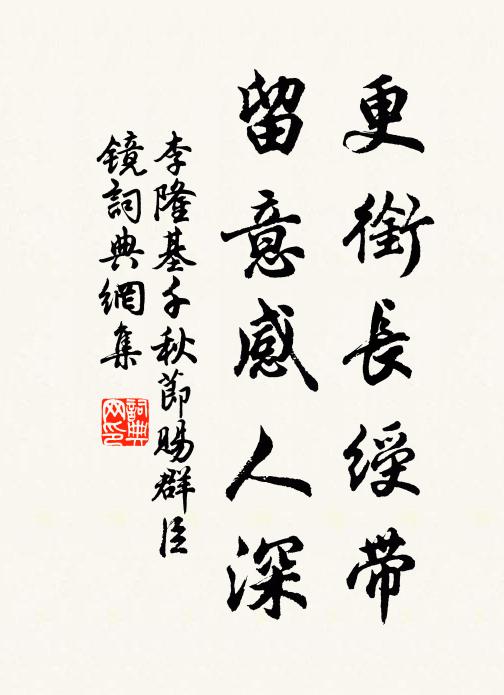 更銜長綬带
留意感人深
李隆基千秋節賜群臣
镜詞典網集
詞典
网印